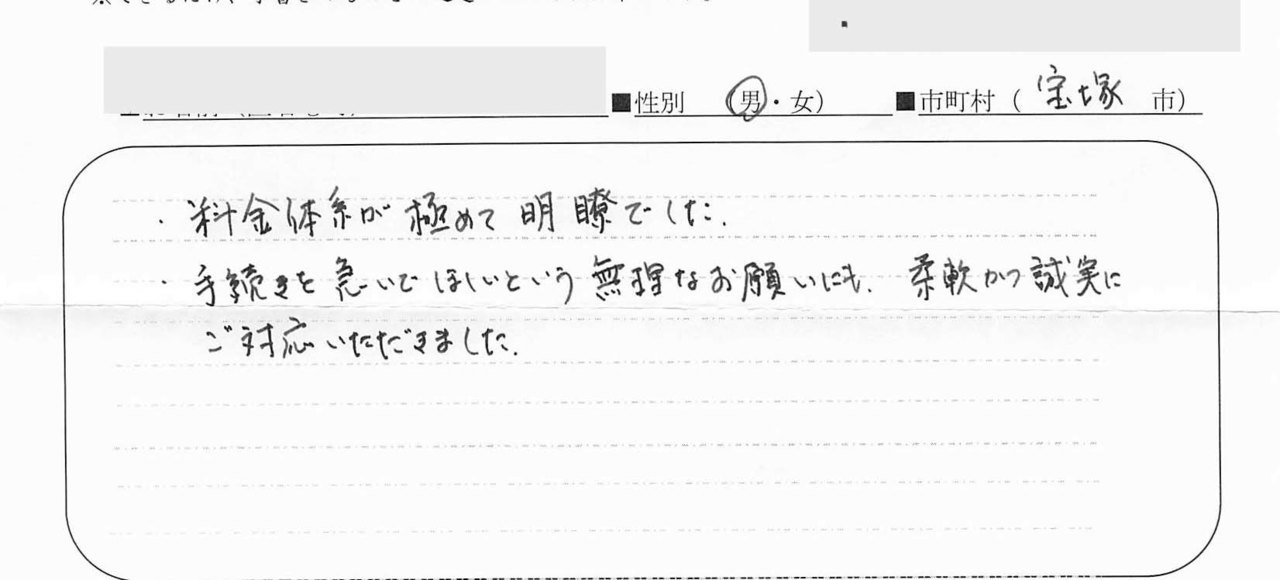 ■性別 （男・女） ■市町村（宝塚 市）
・料金体系が極めて明瞭でした.
・手続きを急いでほしいという無理なお願いにも、柔軟かつ誠実に
ご対応いただきました.